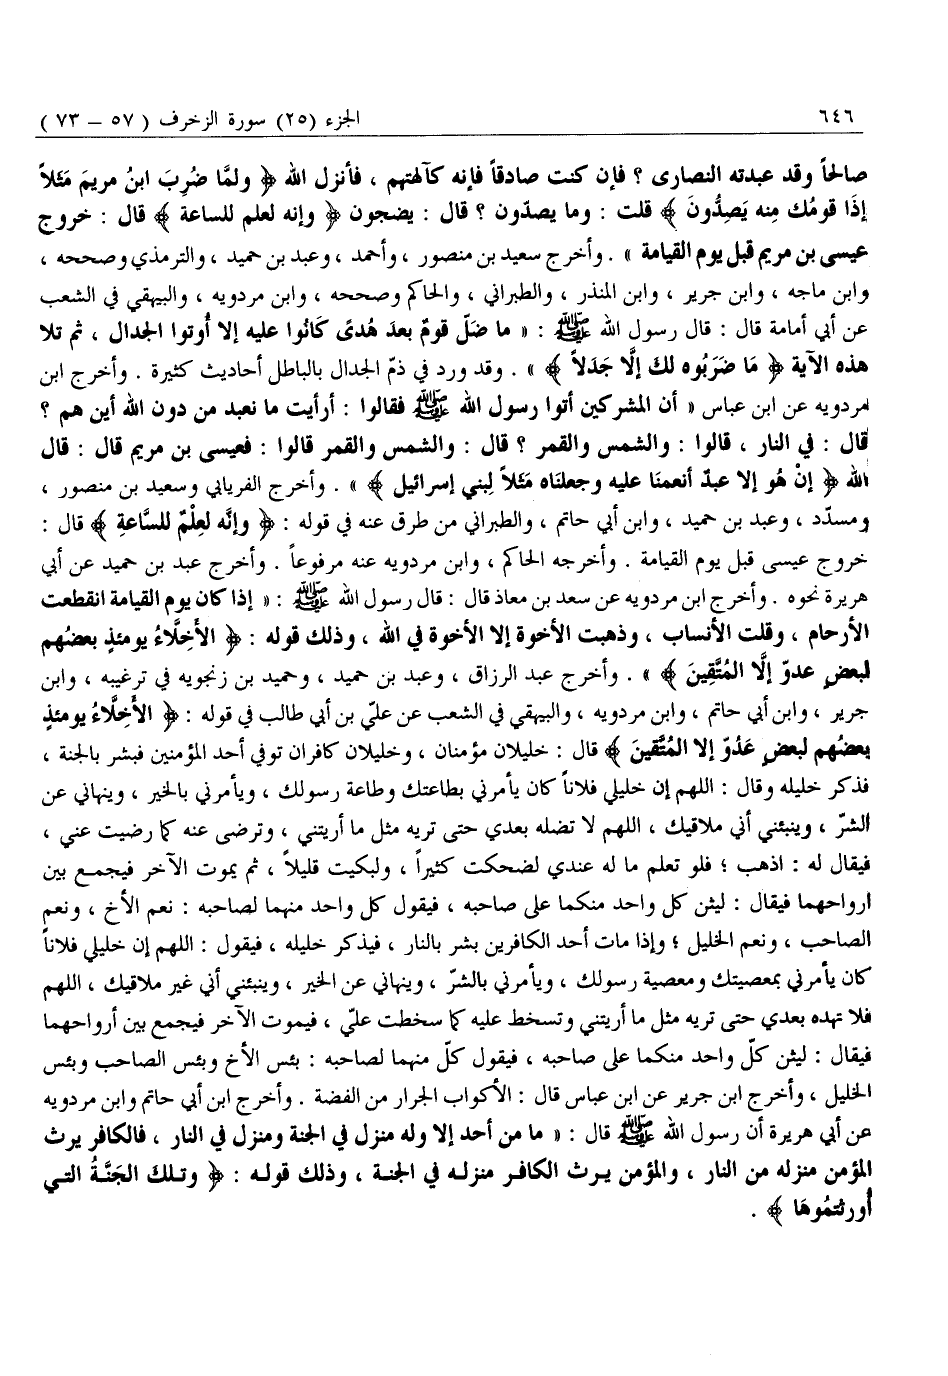 ٦٤٦
الجزء (٢٥) سورة الزخرف ( ٥٧ – ٧٣ )
صالحاً وقد عبدته النصارى ؟ فإن كنت صادقاً فإنه كآلهتهم ، فأنزل الله ﴿ ولمَّا ضُرِبَ ابنُ مريمَ مَثَلاً
إذَا قومُك مِنه يَصِدُّونَ ﴾ قلت : وما يصدّون ؟ قال : يضجون ﴿ وإنه لعلم للساعة ﴾ قال : خروج
عيسى بن مريم قبل يوم القيامة » . وأخرج سعيد بن منصور ، وأحمد ، وعبد بن حميد ، والترمذي وصححه ،
وابن ماجه ، وابن جرير ، وابن المنذر ، والطبراني ، والحاكم وصححه ، وابن مردويه ، والبيهقي في الشعب
عن أبي أمامة قال : قال رسول الله ﷺ : « ما ضَلّ قومٌ بعدَ هُدىً كَانُوا عليه إلا أُوتوا الجدال ، ثم تلا
هذه الآية ﴿ مَا ضَرَبُوه لكَ إلَّا جَدَلاً ﴾ » . وقد ورد في ذمّ الجدال بالباطل أحاديث كثيرة . وأخرج ابن
مردويه عن ابن عباس « أن المشركين أتوا رسول الله ﷺ فقالوا : أرأيت ما نعبد من دون الله أين هم ؟
قال : في النار ، قالوا : والشمس والقمر ؟ قال : والشمس والقمر قالوا : فعيسى بن مريم قال : قال
الله ﴿ إنْ هُو إلا عبدٌ أنعمنَا عليه وجعلنَاه مَثَلاً لِبني إسرائيل ﴾ » . وأخرج الفريابي وسعيد بن منصور ،
ومسدّد ، وعبد بن حميد ، وابن أبي حاتم ، والطبراني من طرق عنه في قوله : ﴿ وإنَّه لعِلْمٌ للسَّاعةِ ﴾ قال :
خروج عيسى قبل يوم القيامة . وأخرجه الحاكم ، وابن مردويه عنه مرفوعاً . وأخرج عبد بن حميد عن أبي
هريرة نحوه . وأخرج ابن مردويه عن سعد بن معاذ قال : قال رسول الله ﷺ : « إذا كان يوم القيامة انقطعت
الأرحام ، وقلت الأنساب ، وذهبت الأخوة إلا الأخوة في الله ، وذلك قوله : ﴿ الأَخِلَّاءُ يومئذٍ بعضُهم
لبعضٍ عدوّ إلَّا المُتَّقِينَ ﴾ » . وأخرج عبد الرزاق ، وعبد بن حميد ، وحميد بن زنجويه في ترغيبه ، وابن
جرير ، وابن أبي حاتم ، وابن مردويه ، والبيهقي في الشعب عن عليّ بن أبي طالب في قوله : ﴿ الأَخِلَّاءُ يومئذٍ
بعضُهم لبعضٍ عَدُوّ إلا المُتَّقينَ ﴾ قال : خليلان مؤمنان ، وخليلان كافران توفي أحد المؤمنين فبشر بالجنة ،
فذكر خليله وقال : اللهم إن خليلي فلاناً كان يأمرني بطاعتك وطاعة رسولك ، ويأمرني بالخير ، وينهاني عن
الشرّ ، وينبئني أني ملاقيك ، اللهم لا تضله بعدي حتى تريه مثل ما أريتني ، وترضى عنه كما رضيت عني ،
فيقال له : اذهب ؛ فلو تعلم ما له عندي لضحكت كثيراً ، ولبكيت قليلاً ، ثم يموت الآخر فيجمع بين
أرواحهما فيقال : ليثن كل واحد منكما على صاحبه ، فيقول كل واحد منهما لصاحبه : نعم الأخ ، ونعم
الصاحب ، ونعم الخليل ؛ وإذا مات أحد الكافرين بشر بالنار ، فيذكر خليله ، فيقول : اللهم إن خليلي فلاناً
كان يأمرني بمعصيتك ومعصية رسولك ، ويأمرني بالشرّ ، وينهاني عن الخير ، وينبئني أني غير ملاقيك ، اللهم
فلا تهده بعدي حتى تريه مثل ما أريتني وتسخط عليه كما سخطت عليّ ، فيموت الآخر فيجمع بين أرواحهما
فيقال : ليثن كلّ واحد منكما على صاحبه ، فيقول كلّ منهما لصاحبه : بئس الأخ وبئس الصاحب وبئس
الخليل ، وأخرج ابن جرير عن ابن عباس قال : الأكواب الجرار من الفضة . وأخرج ابن أبي حاتم وابن مردويه
عن أبي هريرة أن رسول الله ﷺ قال : « ما من أحد إلا وله منزل في الجنة ومنزل في النار ، فالكافر يرث
المؤمن منزله من النار ، والمؤمن يرث الكافر منزله في الجنة ، وذلك قوله : ﴿ وتلك الجَنَّةُ التي
أورثتمُوهَا ﴾ .